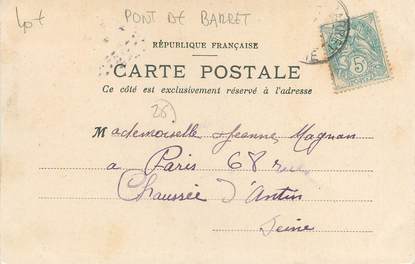 Lot
PONT DE BARRET
RÉPUBLIQUE FRANÇAISE
CARTE POSTALE
Ce côté est exclusivement réservé à l'adresse
5
(26)
Mademoiselle Jeanne Magnan
a Paris 68
Chaussée d'Antin
Seine